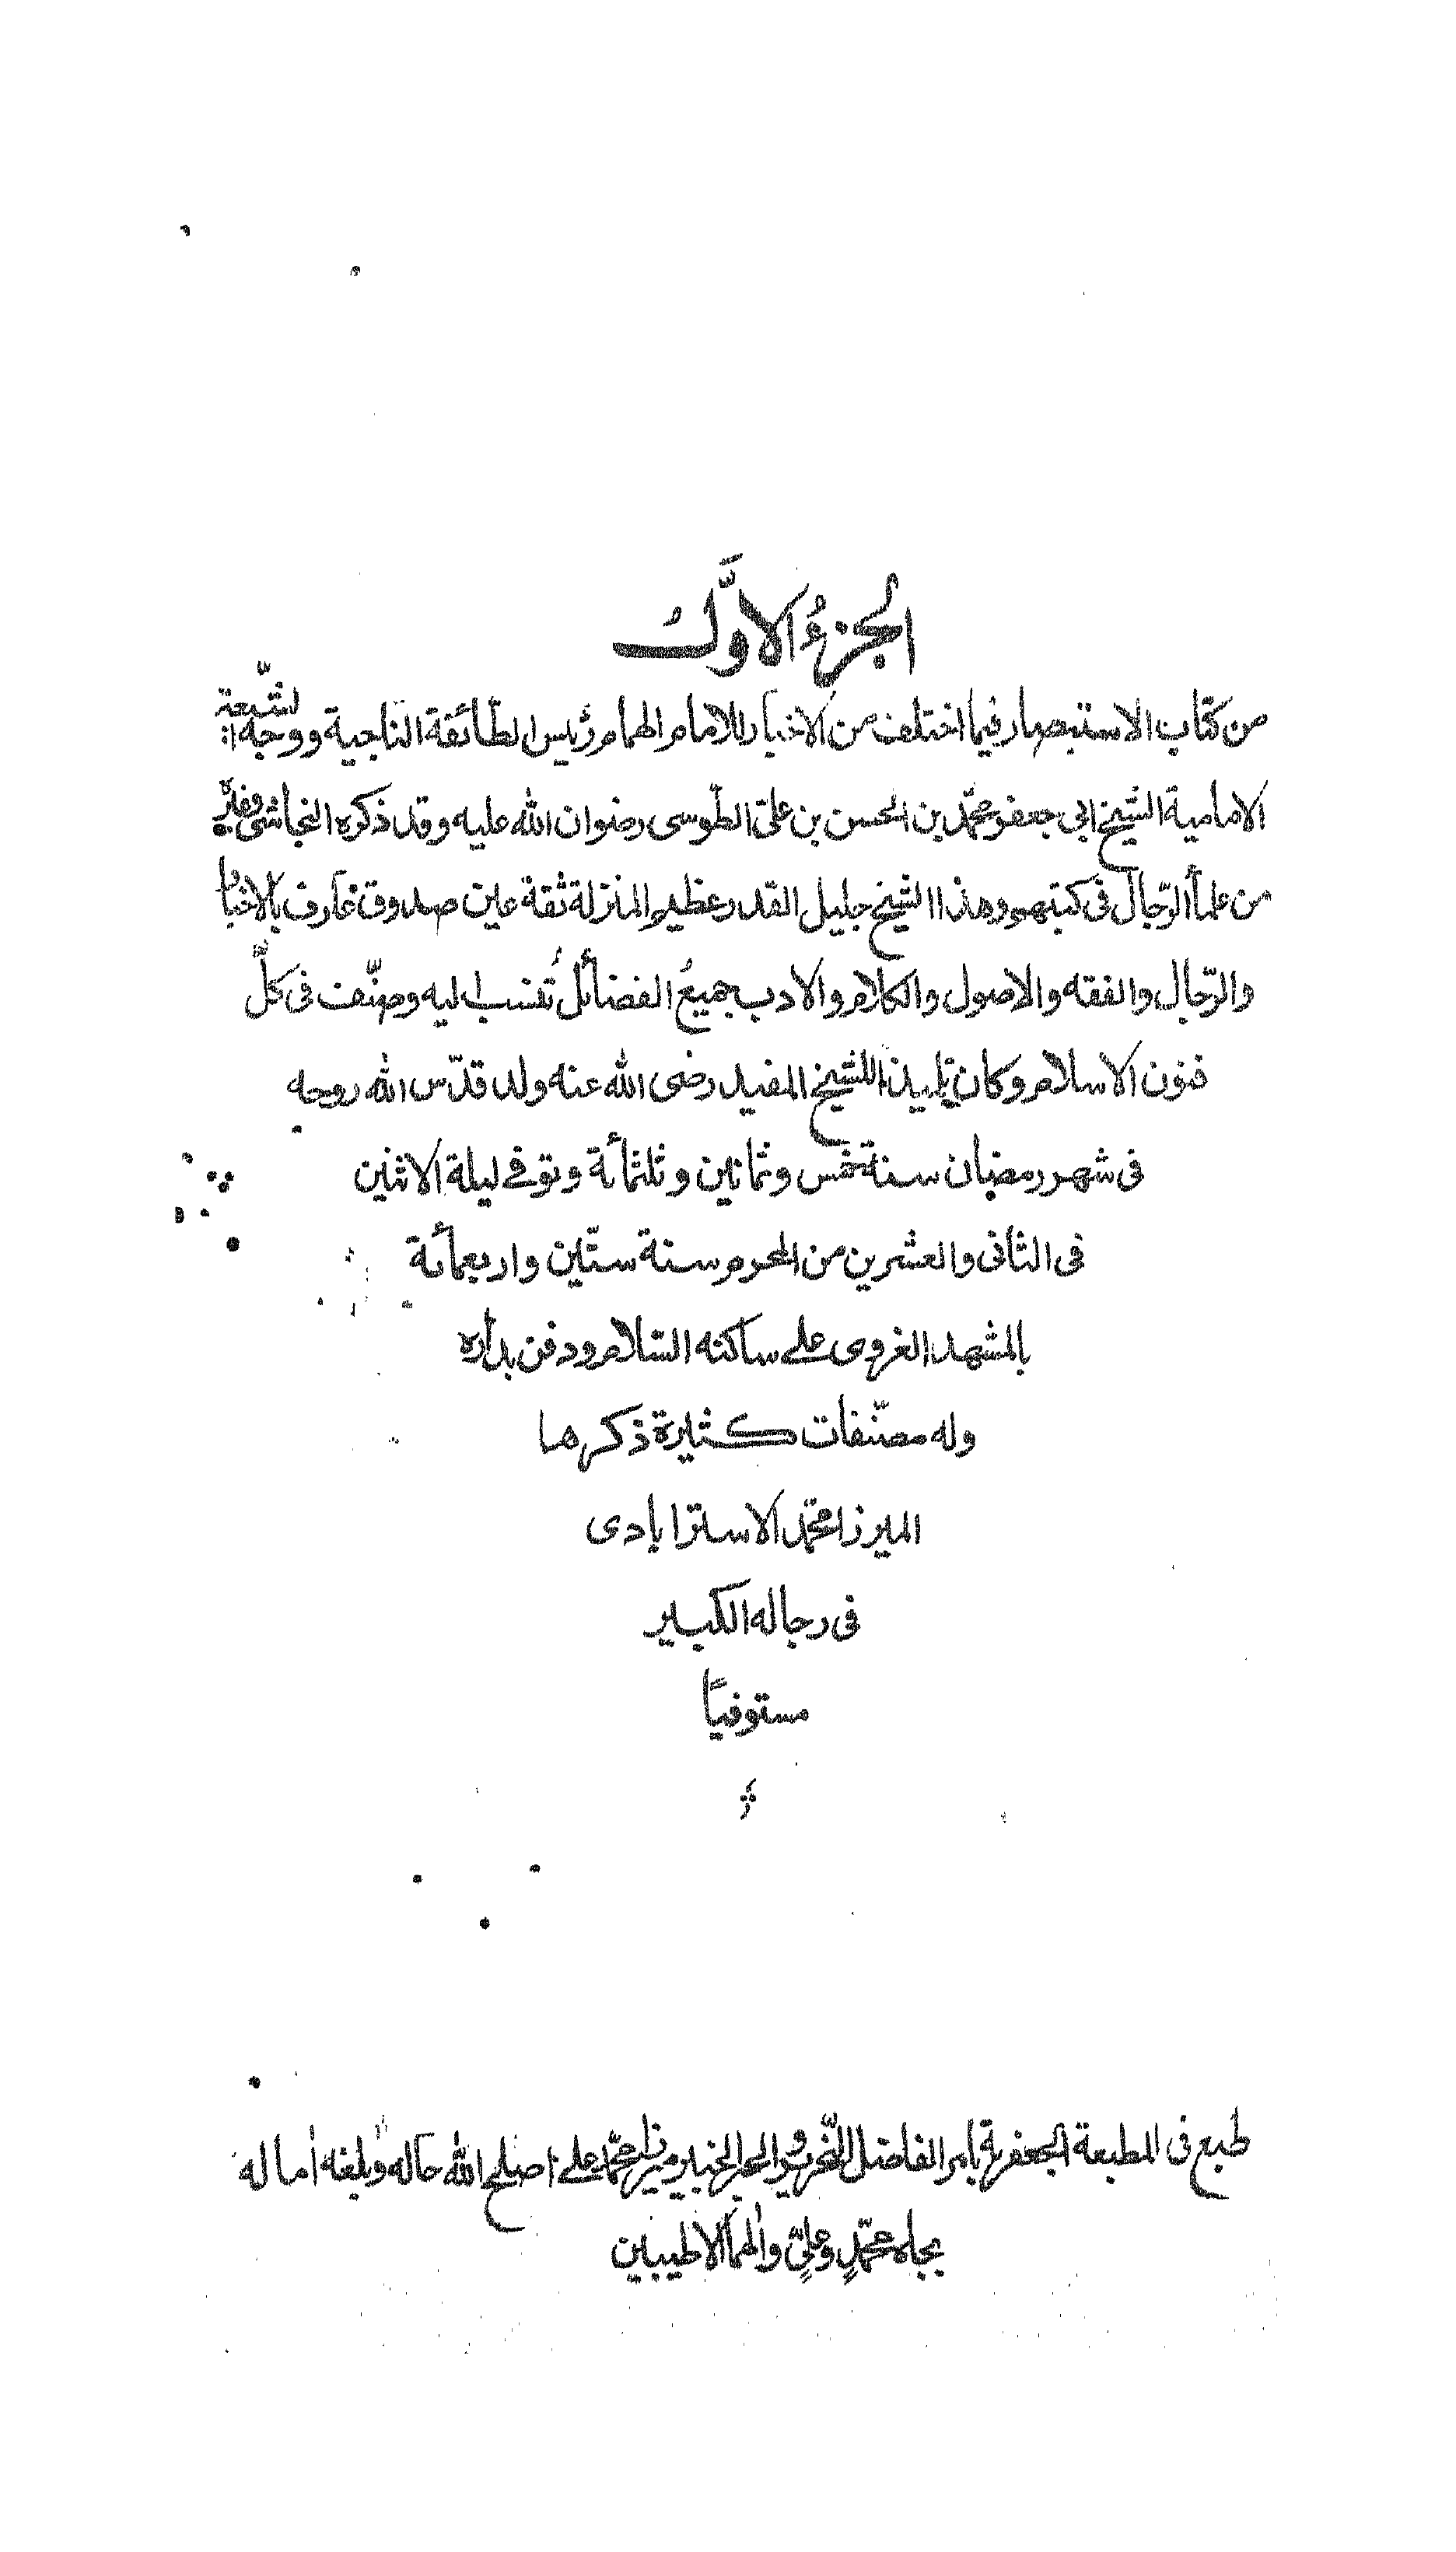 الجزءُ الاوَّلُ
من كتاب الاستبصار فيما اختلف من الاخبار للامام الهمام رئيس الطائفة الناجية ووجه الشّيعة
الامامية الشيخ ابي جعفر محمّد بن الحسن بن علىّ الطّوسى رضوان الله عليه وقد ذكره النجاشى وغيره
من علمأ الرّجال فى كتبهم وهذا الشيخ جليل القدر عظيم المنزلة ثقة عين صدوق عارف بالاخبار
والرّجال والفقه والاصول والكلام والادب جميعُ الفضائل تُنسب اليه وصنّف فى كلّ
فنون الاسلام وكان تلميذ الشيخ المفيد رضى الله عنه ولد قدّس الله روحه
فى شهر رمضان سنة خمس وثمانين وثلثمائة وتوفے ليلة الاثنين
فى الثانى والعشرين من المحرم سنة ستّين واربعمائة
بالمشهد الغروى علے ساكنه السّلام ودفن بداره
وله مصنّفات كثيرة ذكرها
الميرزا محمّد الاسترابادى
فى رجاله الكبير
مستوفيًا
طبع فى المطبعة الجعفرية بامر الفاضل النّحرير والحبر الخبير ميرزا محمّد علے اصلح الله حاله وبلغه اماله
بجاه محمّدٍ وعلىٍّ والهما الاطيبين